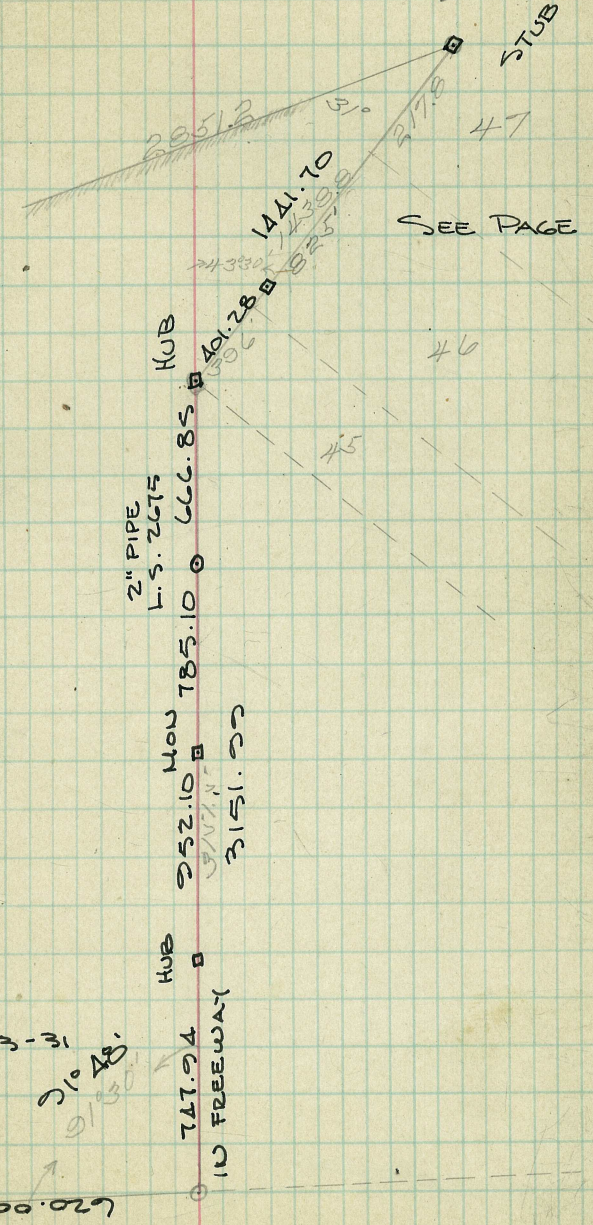 STUB
2851.2
31°
217.8
47
1441.70
1438.8
SEE PAGE
825'
401.28
396
46
HUB
666.85
45
2" PIPE
L.S. 2675
785.10
MON
952.10
3151.99
HUB
747.94
IN FREEWAY
91° 48'
91°30'
620.00